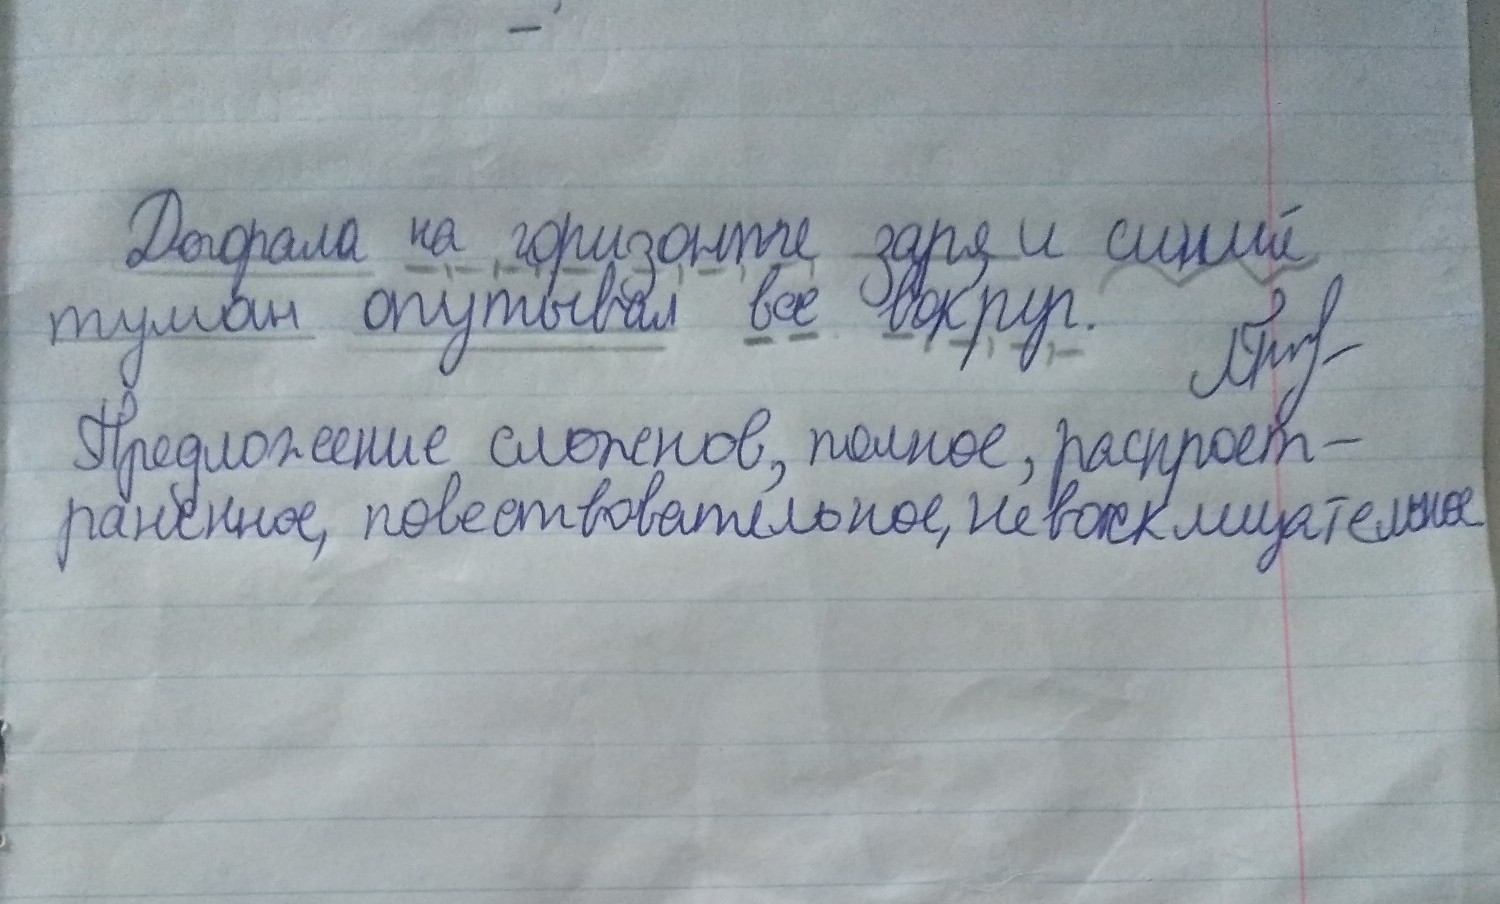 Догорала на горизонте заря и синий
туман опутывал все вокруг.
Предложение сложенов, полное, распрост-
раненное, повествовательное, невоскмицательное